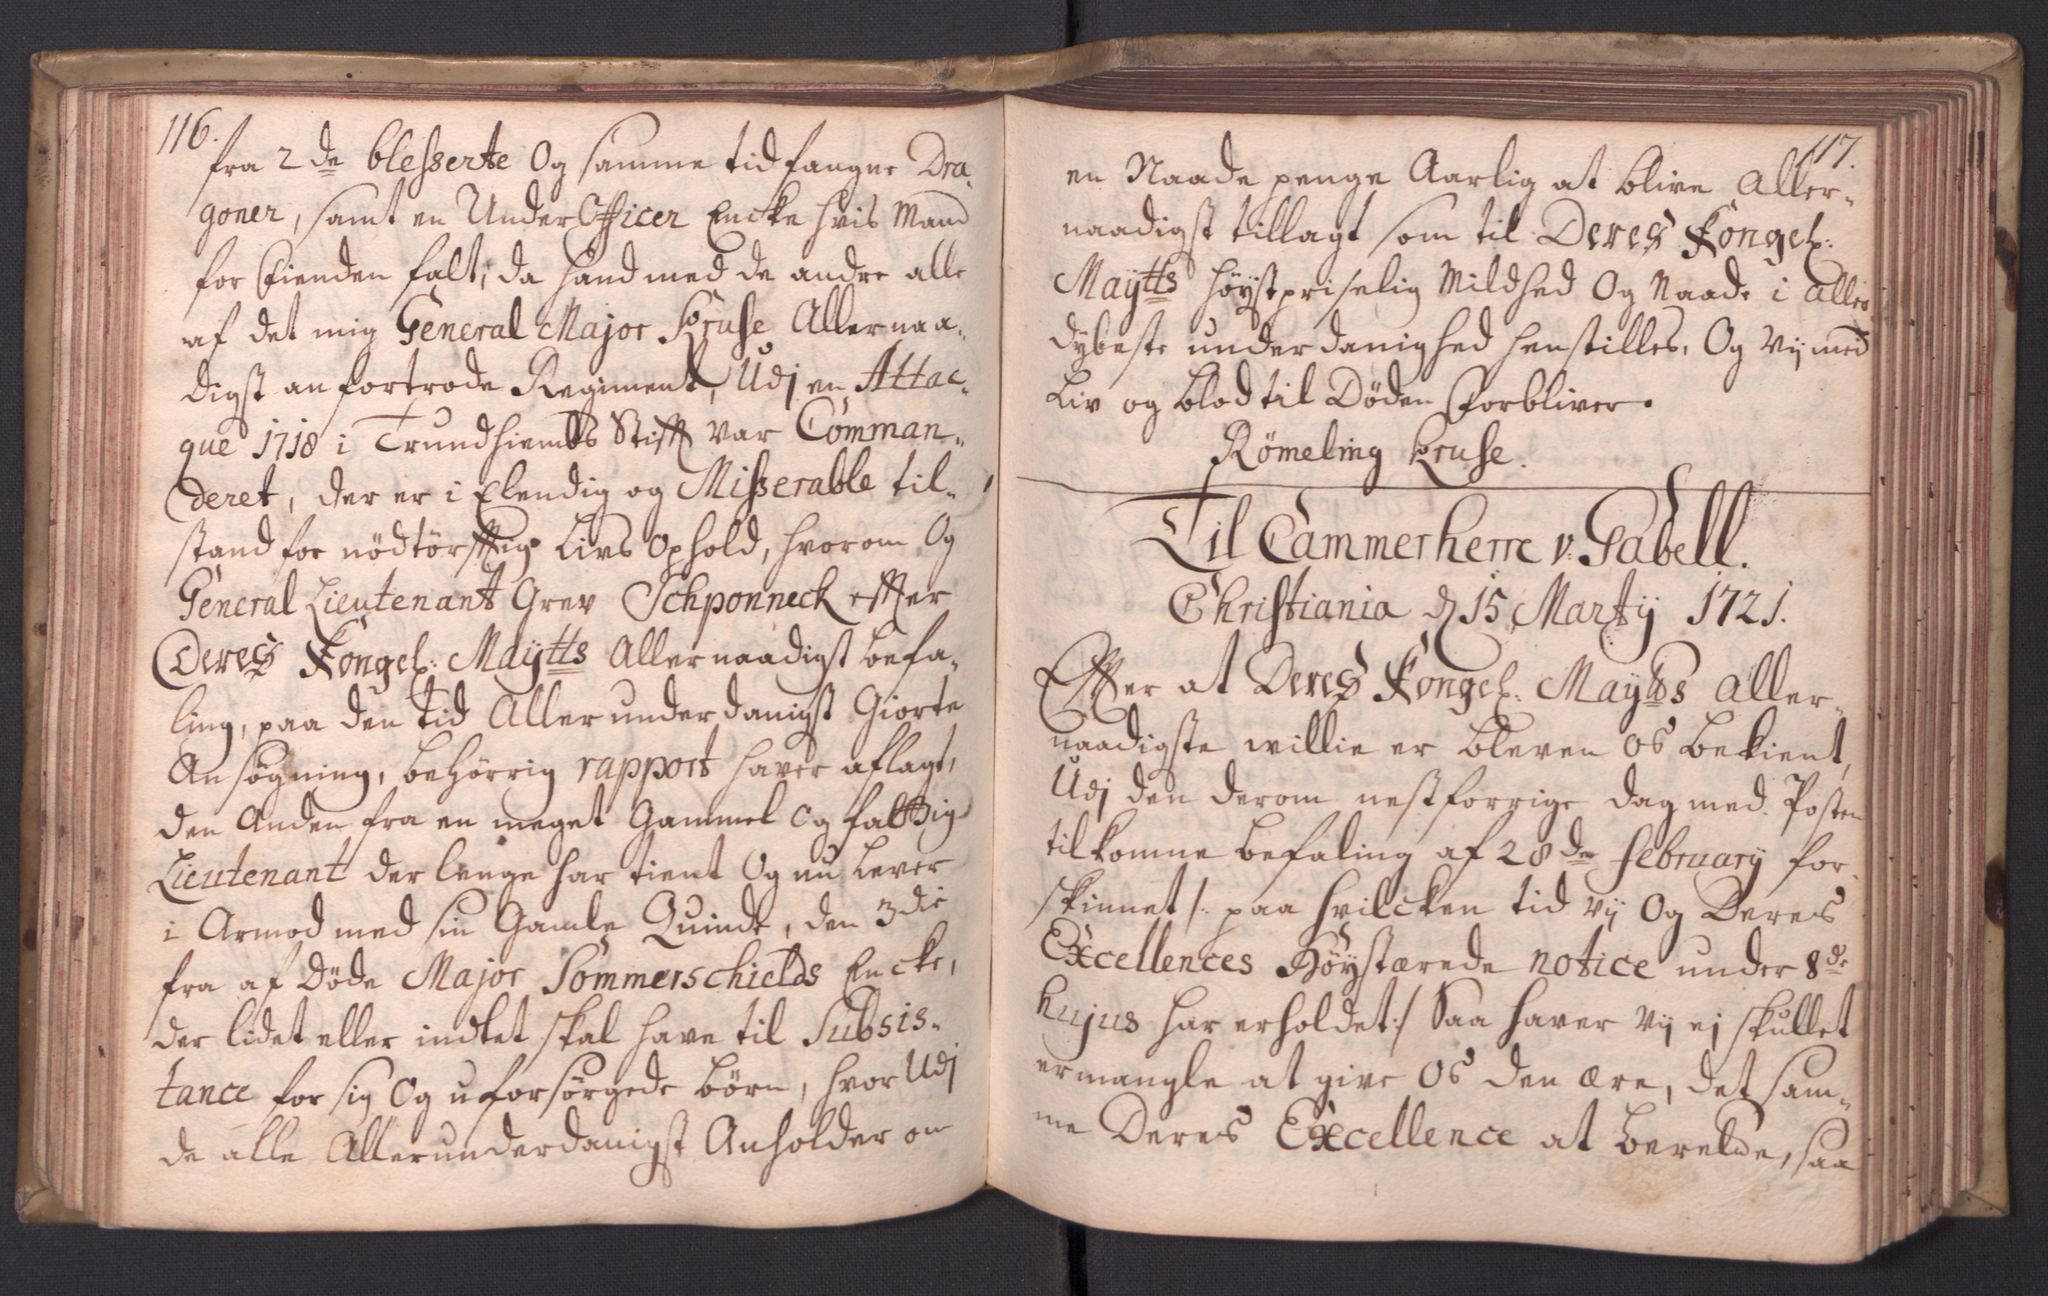 116.
fra 2de blesserte Og samme tid fangne Dra-
goner, samt en UnderOfficer Encke hvis Mand
for Fienden falt, da hand med de andre alle
af det mig General Major Kruse Allernaa-
digst anfortrode Regiment, Udj en Attac-
que 1718 i Trundhiembs Stift var Comman-
deret, der er i Elendig og Misserable til-
stand for nödtörfftig Livs Ophold, hvorom Og
General Lieutenant Grev Schponneck effter
Deres Kongel: Maytts Allernaadigst befa-
ling, paa den tid Allerunderdanigst Giorte
Ansøgning, behörrig rapport haver aflagt,
den Anden fra en meget Gammel Og faltig
Lieutenant der lenge har tient Og nu Lever
i Armod med sin Gamle Quinde, den 3die
fra afdöde Major Sommerschields Encke,
der lidet eller indtet skal have til Subsis-
tance for sig Og uforsörgede börn, hvorUdj
de alle Allerunderdanigst Anholder om
117.
en Naade penge Aarlig at blive Aller-
naadigst tillagt som til Deres Kongel:
Maytts höystpriselig Mildhed Og Naade i aller
dybeste underdanighed henstilles, Og Vij med
Liv og blod til Döden Forbliver.
Römeling Kruse.
Til Cammerherre v: Gabell.
Christiania d 15 Martij 1721.
Effter at Deres Kongel: Maytts Aller-
naadigste willie er bleven os bekient,
Udj den derom nestforrige dag med Posten
tilkomne befaling af 28de February for-
skinnet /: paa hvilcken tid vij Og Deres
Excellences Höystærede notice under 8de
hujus har erholdet :/ Saa haver Vij ej skullet
ermangle at give Os den ære, det sam-
me Deres Excellence at berette, saa